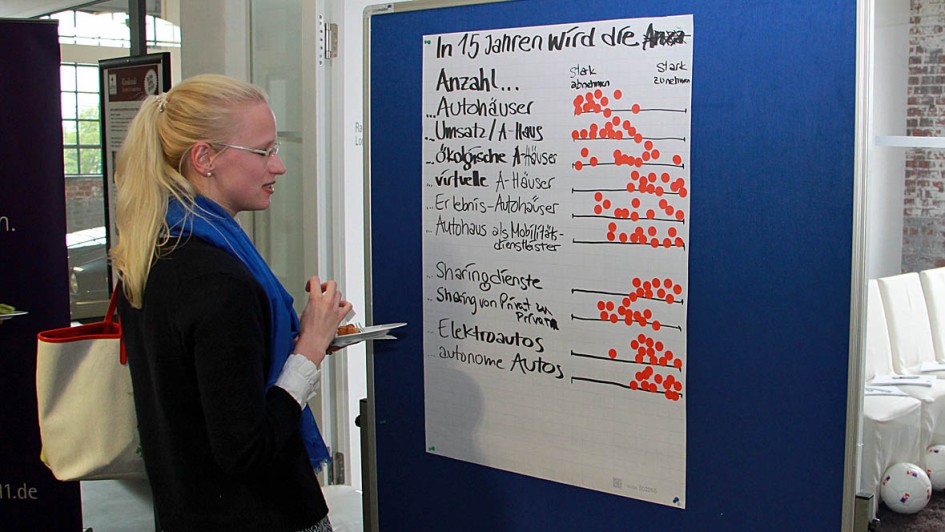 In 15 Jahren wird die
Anzahl...
stark
abnehmen
stark
zunehmen
...Autohäuser
...Umsatz/A-Haus
...ökologische A-Häuser
...virtuelle A-Häuser
...Erlebnis-Autohäuser
...Autohaus als Mobilitäts-
dienstleister
...Sharingdienste
...Sharing von Privat zu
Privat
...Elektroautos
...autonome Autos
n.
11.de